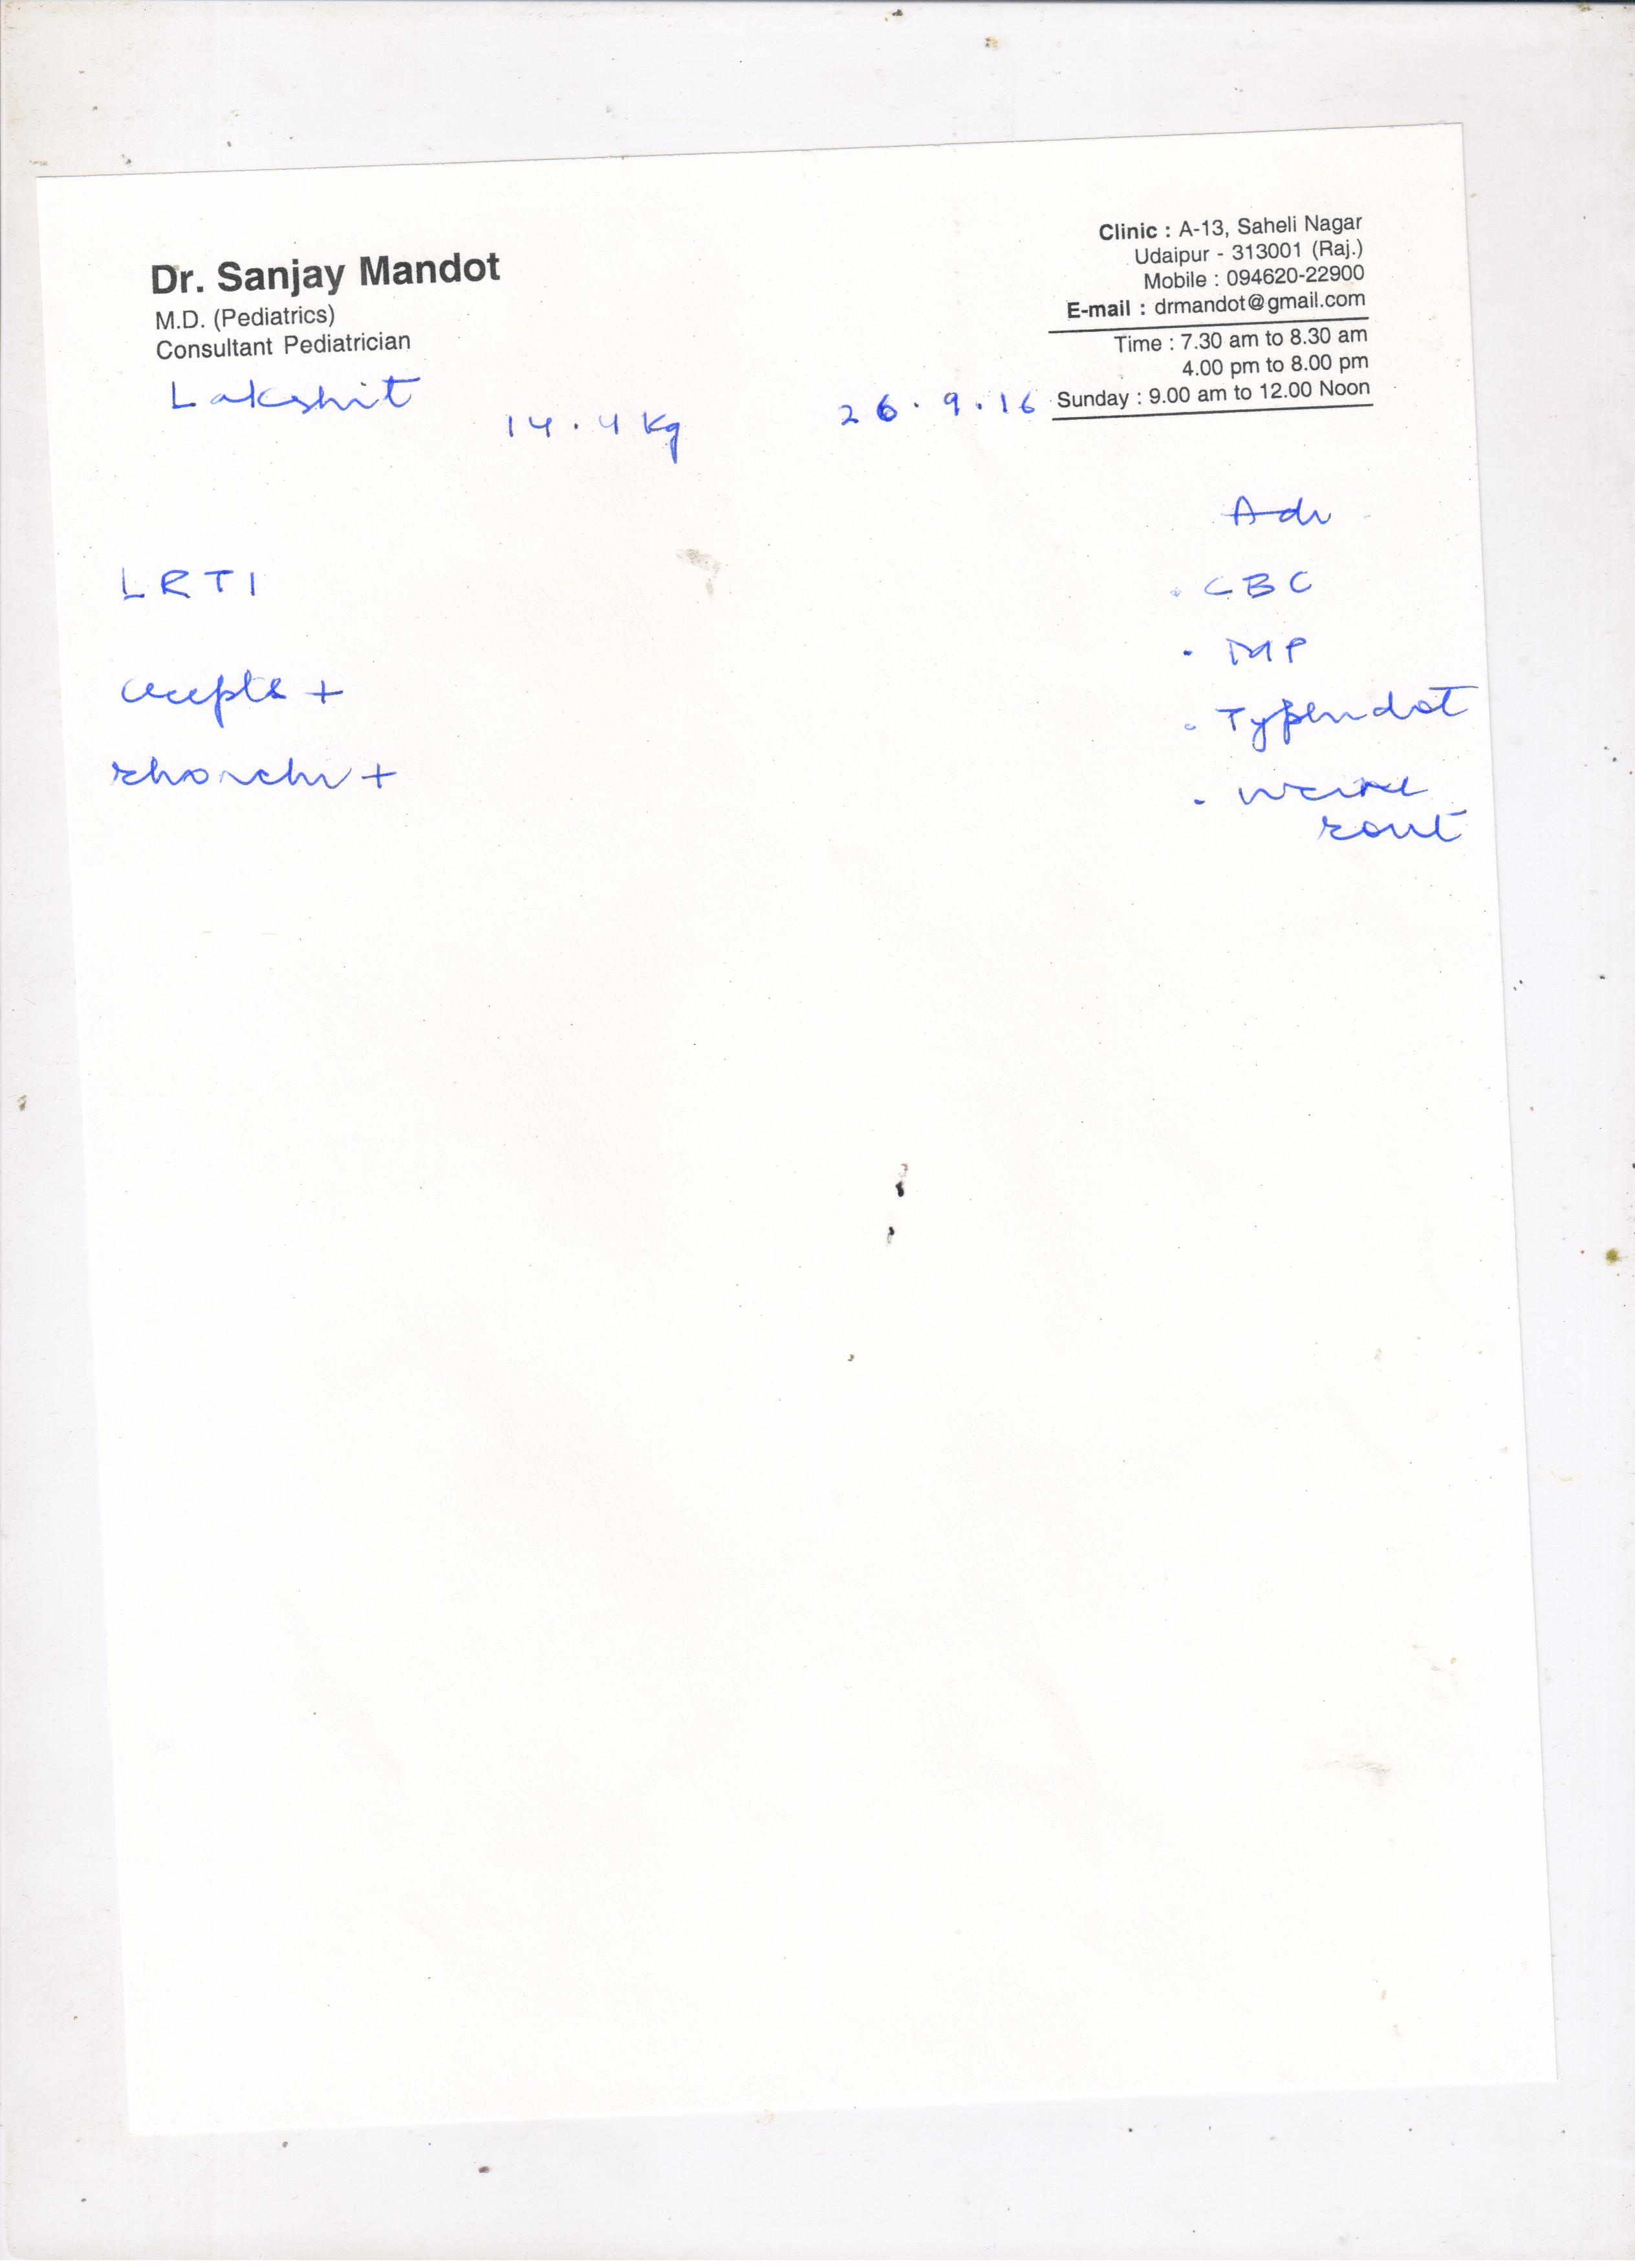 Dr. Sanjay Mandot
M.D. (Pediatrics)
Consultant Pediatrician
Clinic : A-13, Saheli Nagar
Udaipur - 313001 (Raj.)
Mobile : 094620-22900
E-mail : drmandot@gmail.com
Time : 7.30 am to 8.30 am
4.00 pm to 8.00 pm
Sunday : 9.00 am to 12.00 Noon
Lakshit
14.4 kg
26.9.16
Adv
LRTI
crepts +
rhonchi +
. CBC
. MP
. Typhidot
. urine
rout